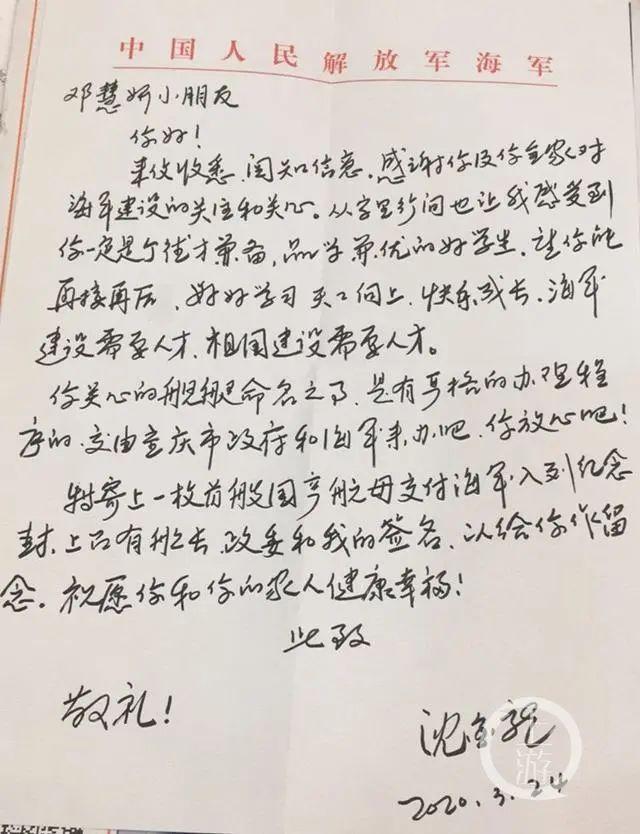 中国人民解放军海军
邓慧妍小朋友
你好！
来信收悉,阅知信意。感谢你及你全家对
海军建设的关注和关心。从字里行间也让我感受到
你一定是个德才兼备,品学兼优的好学生,望你能
再接再厉,好好学习天天向上,快乐成长,海军
建设需要人才,祖国建设需要人才。
你关心的舰艇命名之事,是有严格的办理程
序的,交由重庆市政府和海军来办吧,你放心吧！
特寄上一枚首艘国产航母交付海军入列纪念
封,上只有舰长、政委和我的签名,以给你作留
念。祝愿你和你的家人健康幸福！
此致
敬礼！
沈金龙
2020.3.24
上游